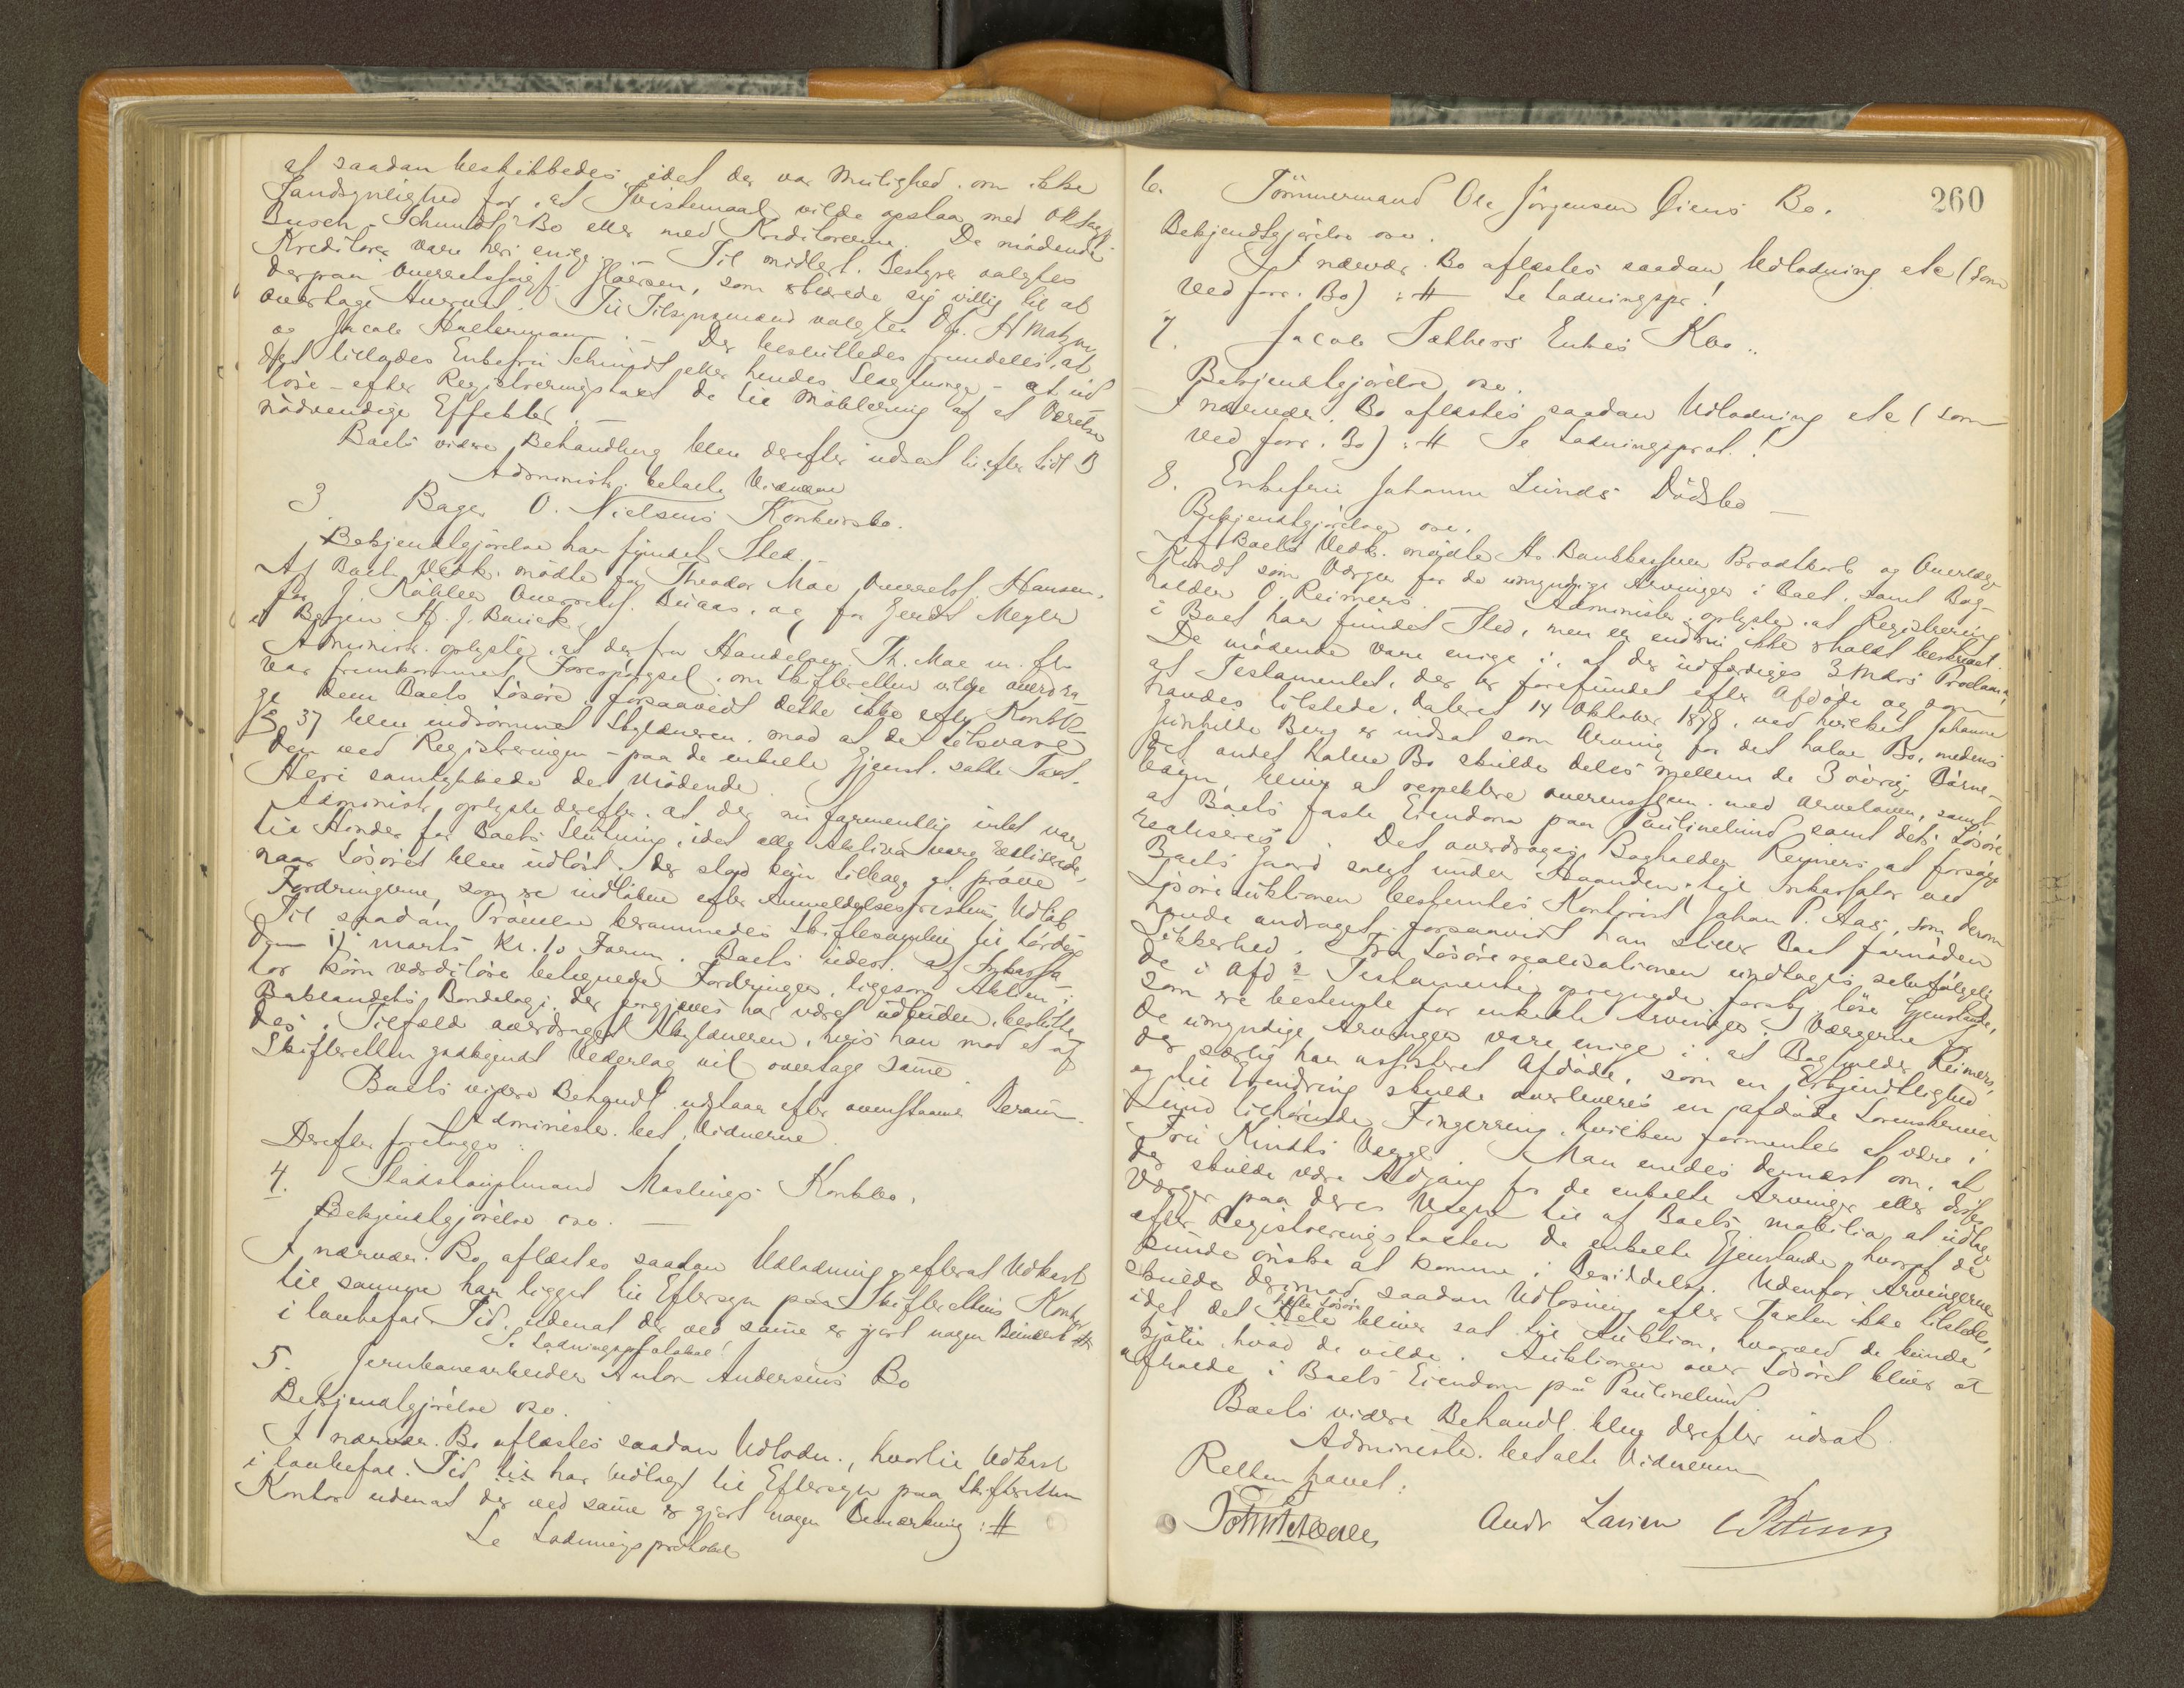 at saadan beskikkedes, idet der var Mulighed om ikke
Sandsynlighed for, at Tvistemaal vilde opstaa med
Busch - Schmidts Bo eller med Kreditorerne. De mødende
Kreditorer vare heri enige. Til midlert. Bestyrer valgtes
derpaa Overretssagf. som erklærede sig villig til at
overtage Hvervet. Til Tilsynsmænd valgtes
og Jacob Halterman. Der besluttedes fremdeles, at
det tillodes Enkefru Schmidt eller hendes Slægtninge - at ud
løse - efter Registreringstaxt de til Møblering af et Værelse
nødvendige Effekter. -
Boets videre Behandling blev derefter udsat
Administr. betalte Vidnerne
3 Bager O. Nielsens Konkursbo.
Bekjendtgjørelse har fundet Sted.
Af Boets Vedk. mødte for Theodor Moe Overretss. Hansen,
for J. Køhler Overretss. Buaas, og for Gerdt Meyer
i Bergen H. J. Barick.
Administr. oplyste, at der fra Handelsm. Th. Moe m. fl.
var fremkommet Forespørgsel, om Skifteretten vilde overdra-
ge dem Boets Løsøre, forsaavidt dette ikke efter Konkl.
§ 37 blev indrømmet Skyldneren, mod at de tilsvare
den ved Registreringen - paa de enkelte Gjenst. satte Taxt.
Heri samtykkede de Mødende.
Administr. oplyste derefter, at der nu formentlig intet var
til Hinder for Boets Slutning, idet alle Aktiva vare realiserede,
naar Løsøret blev udløst. Der stod kun tilbage at prøve
Fordringerne, som ere indløbne efter Anmeldelsesfristens Udløb.
Til saadan Prøvelse berammedes Skiftesamling til Lørdag
den marts Kl. 10 Form. Boets uderst. af Inkassa-
tor som værdiløse betegnede Fordringer, ligesom Aktien i
Baklandets Bordelag, der forgjæves har været udbuden, beslutte-
des i Tilfælde overdraget Skyldneren, hvis han mod et af
Skifteretten godkjendt Vederlag vil overtage same.
Boets videre Behandl. udstaar efter ovenstaaende Beram-
Administr. bet. Vidnerne.
Derefter foretoges:
4. Stadshauptmand Mastings Konkbo.
Bekjendtgjørelse osv. -
I nærvær. Bo aflæstes saadan Udlodning, efterat Udkast
til samme har ligget til Eftersyn paa Skifterettens Kontor
i lovbefal. Tid, udenat der ved same er gjort nogen Bemærk #
Se Lodningsprotokol!
5. Jernbanearbeider Anton Andersens Bo
Bekjendtgjørelse osv.
I nærvær. Bo aflæstes saadan Udlodn., hvortil Udkast
i lovbefal. Tid har udlagt til Eftersyn paa Skifterettens
Kontor udenat der ved same er gjort nogen Bemærkning: #
Se Lodningsprotokol
260
6. Tømmermand Ole Jørgensen Øiens Bo.
Bekjendtgjørelse osv.
I nærvær. Bo aflæstes saadan Udlodning etc (som
ved forr. Bo) : # Se Lodningspr!
7. Jacob Sæthers Enkes Kbo.
Bekjendtgjørelse osv.
I nærvær. Bo aflæstes saadan Udlodning etc (som
ved forr. Bo) : # Se Lodningsprot.!
8. Enkefru Johanne Lunds Dødsbo -
Bekjendtgjørelse osv.
Af Boets Vedk. mødte Hr. Bankkasserer Bradtkorb og Overlæge
Kindt som Værger for de umyndige Arvinger i Boet, samt Bog-
holder O. Reimers. Administr. oplyste, at Registrering
i Boet har fundet Sted, men er endnu ikke
De mødende vare enige i, at der udfærdiges 3 Mdrs Proclama,
at Testamentet, der er forefundet efter Afdøde og som
 tilstede, dateret 14 Oktober 1878, ved hvilket Johanne
Gunhilde Berg er indsat som Arving for det halve Bo, medens
det andet halve Bo skulde deles mellem de 3 øvrige Børne-
børn bliver at respektere overensstem. med Arveloven, samt
at Boets faste Eiendom paa Paulinelund samt dets Løsøre
realiseres. Det overdroges Bogholder Reimers at forsøge
Boets Gaard solgt under Haanden. Til Inkassator ved
Løsøreauktionen bestemtes Kontorist Johan P. Aas, som derom
havde andraget, forsaavidt han stiller Boet fornøden
Sikkerhed. Fra Løsørerealisationen undtages selvfølgelig
de i Afdes Testamente opregnede forskj. løse Gjenstande,
som ere bestemte for enkelte Arvinger. Værgerne for
de umyndige Arvinger vare enige i, at Bogholder Reimers,
der særlig har assisteret Afdøde, som en Erkjendtlighed
og til Erindring skulde overleveres en afdøde Lorensteen
Lund tilhørende Fingerring, hvilken formentes at være i
Fru Kindts Værge. Man enedes dernæst om, at
der skulde være Adgang for de enkelte Arvinger eller disses
Værger paa deres Vegne til af Boets mobilia at udtage
efter Registreringstaxten de enkelte Gjenstande, hvoraf de
kunde ønske at komme i Besiddelse. Udenfor Arvingerne
skulde derimod saadan Udløsning efter Taxten ikke tilstedes,
idet det Hele Løsøre bliver sat til Auktion, hvorved de kunde
kjøbe, hvad de vilde. Auktionen over Løsøret bliver at
afholde i Boets Eiendom på Paulinelund.
Boets videre Behandl. blev derefter udsat.
Administr. betalte Vidnerne
Retten hævet:
Andr Larsen